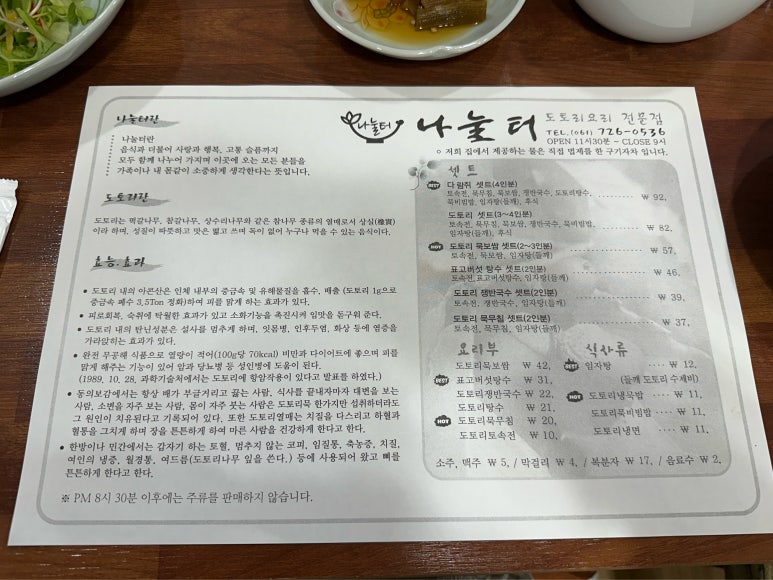 나눌터란
나눌터란
음식과 더불어 사랑과 행복, 고통 슬픔까지
모두 함께 나누어 가지며 이곳에 오는 모든 분들을
가족이나 내 몸같이 소중하게 생각한다는 뜻입니다.
도토리란
도토리는 떡갈나무, 참갈나무, 상수리나무와 같은 참나무 종류의 열매로서 상실(橡實)
이라 하며, 성질이 따뜻하고 맛은 떫고 쓰며 독이 없어 누구나 먹을 수 있는 음식이다.
효능.효과
• 도토리 내의 아콘산은 인체 내부의 중금속 및 유해물질을 흡수, 배출 (도토리 1g으로
중금속 폐수 3,5Ton 정화)하여 피를 맑게 하는 효과가 있다.
• 피로회복, 숙취에 탁월한 효과가 있고 소화기능을 촉진시켜 입맛을 돋구워 준다.
• 도토리 내의 탄닌성분은 설사를 멈추게 하며, 잇몸병, 인후두염, 화상 등에 염증을
가라앉히는 효과가 있다.
• 완전 무공해 식품으로 열량이 적어(100g당 70kcal) 비만과 다이어트에 좋으며 피를
맑게 해주는 기능이 있어 암과 당뇨병 등 성인병에 도움이 된다.
(1989, 10, 28, 과학기술처에서 도토리에 항암작용이 있다고 발표를 하였다.)
• 동의보감에서는 항상 배가 부글거리고 끓는 사람, 식사를 끝내자마자 대변을 보는
사람, 소변을 자주 보는 사람, 몸이 자주 붓는 사람은 도토리묵 한가지만 섭취하더라도
그 원인이 치유된다고 기록되어 있다. 또한 도토리열매는 치질을 다스리고 하혈과
혈통을 그치게 하며 장을 튼튼하게 하여 마른 사람을 건강하게 한다고 한다.
• 한방이나 민간에서는 갑자기 하는 토혈, 멈추지 않는 코피, 임질통, 축농증, 치질,
여인의 냉증, 월경통, 여드름(도토리나무 잎을 쓴다.) 등에 사용되어 왔고 뼈를
튼튼하게 한다고 한다.
※ PM 8시 30분 이후에는 주류를 판매하지 않습니다.
나눌터
나눌터
도토리요리 전문점
TEL.(061) 726-0536
OPEN 11시30분 ~ CLOSE 9시
○ 저희 집에서 제공하는 물은 직접 법제를 한 구기자차 입니다.
세트
BEST 다람쥐 셋트(4인분)
토속전, 묵무침, 묵보쌈, 쟁반국수, 도토리탕수, ₩ 92,
묵비빔밥, 임자탕(들깨), 후식
도토리 셋트(3~4인분)
토속전, 묵무침, 묵보쌈, 쟁반국수, 묵비빔밥, ₩ 82,
임자탕(들깨), 후식
HOT 도토리 묵보쌈 셋트(2~3인분) ₩ 57,
토속전, 묵보쌈, 임자탕(들깨)
표고버섯 탕수 셋트(2인분) ₩ 46,
토속전,표고버섯탕수, 임자탕(들깨)
도토리 쟁반국수 셋트(2인분) ₩ 39,
토속전, 쟁반국수, 임자탕(들깨)
도토리 묵무침 셋트(2인분) ₩ 37,
토속전, 묵무침, 임자탕(들깨)
요리부
도토리묵보쌈 ₩ 42,
BEST 표고버섯탕수 ₩ 31,
도토리쟁반국수 ₩ 22,
도토리탕수 ₩ 21,
HOT 도토리묵무침 ₩ 20,
도토리토속전 ₩ 10,
식사류
BEST 임자탕 ₩ 12,
(들깨 도토리 수제비)
HOT 도토리냉묵밥 ₩ 11,
도토리묵비빔밥 ₩ 11,
도토리냉면 ₩ 11,
소주, 맥주 ₩ 5, / 막걸리 ₩ 4, / 복분자 ₩ 17, / 음료수 ₩ 2,